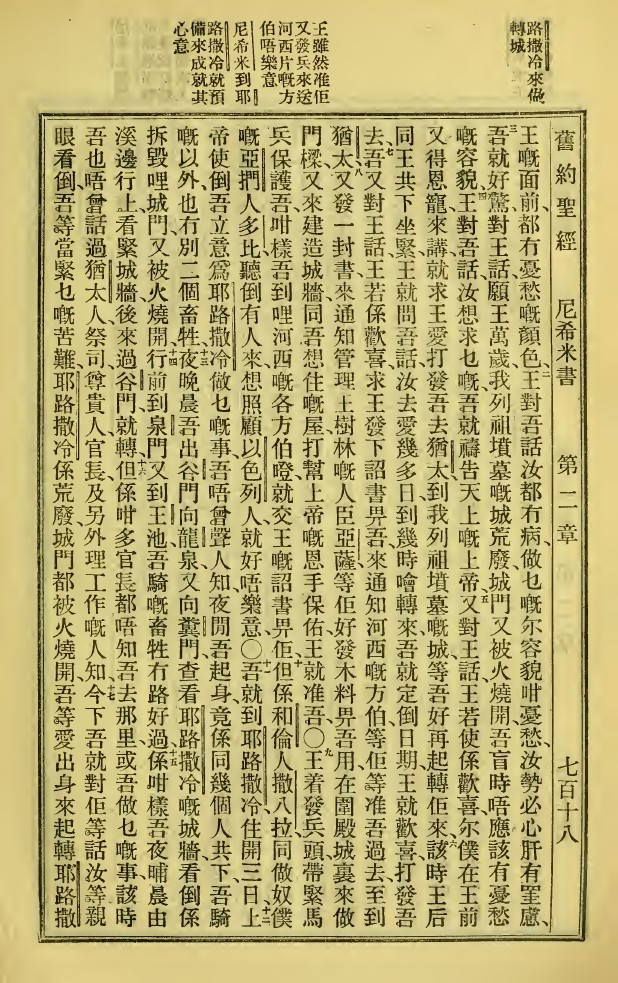 路撒冷來做
轉城
王雖然准佢
又發兵來送
河西片嘅方
伯唔樂意
尼希米到耶
路撒冷就預
備來成就其
心意
舊約聖經 尼希米書 第二章 七百十八
王嘅面前、都有憂愁嘅顏色、二王對吾話、汝都有病、做乜嘅尔容貌咁憂愁、汝勢必心肝有罣慮、
三吾就好驚、對王話、願王萬歲、我列祖墳墓嘅城荒廢、城門又被火燒開、吾盲時唔應該有憂愁
嘅容貌、四王對吾話、汝想求乜嘅、吾就禱告天上嘅上帝、五又對王話、王若使係歡喜、尔僕在王前
又得恩寵、來講就求王愛打發吾去猶太、到我列祖墳墓嘅城、等吾好再起轉佢來、六該時王后
同王共下坐緊、王就問吾話、汝去愛幾多日、到幾時噲轉來、吾就定倒日期、王就歡喜打發吾
去、七吾又對王話、王若係歡喜、求王發下詔書畀吾、來通知河西嘅方伯等、佢等准吾過去、至到
猶太、八又發一封書、來通知管理王樹林嘅人臣亞薩、等佢好發木料畀吾、用在圍殿城裏來做
門樑、又來建造城牆、同吾想住嘅屋、打幫上帝嘅恩手保佑、王就准吾〇九王着發兵頭帶緊馬
兵保護吾、咁樣吾到哩河西嘅各方伯嶝、就交王嘅詔書畀佢、十但係和倫人撒八拉、同做奴僕
嘅亞捫人多比、聽倒有人來想照顧以色列人、就好唔樂意〇十一吾就到耶路撒冷、住開三日、十二上
帝使倒吾立意、爲耶路撒冷做乜嘅事、吾唔曾聲人知、夜間吾起身、竟係同幾個人共下、吾騎
嘅以外、也冇別二個畜牲、十三夜晚晨吾出谷門、向龍泉、又向糞門、查看耶路撒冷嘅城牆、看倒係
拆毀哩、城門又被火燒開、十四行前到泉門、又到王池、吾騎嘅畜牲冇路好過、十五係咁樣吾夜晡晨由
溪邊行上、看緊城牆、後來過谷門就轉、十六但係咁多官長、都唔知吾去那里、或吾做乜嘅事、該時
吾也唔曾話過猶太人祭司、尊貴人、官長、及另外理工作嘅人知、十七今下吾就對佢等話、汝等親
眼看倒、吾等當緊乜嘅苦難、耶路撒冷係荒廢、城門都被火燒開、吾等愛出身來起轉耶路撒